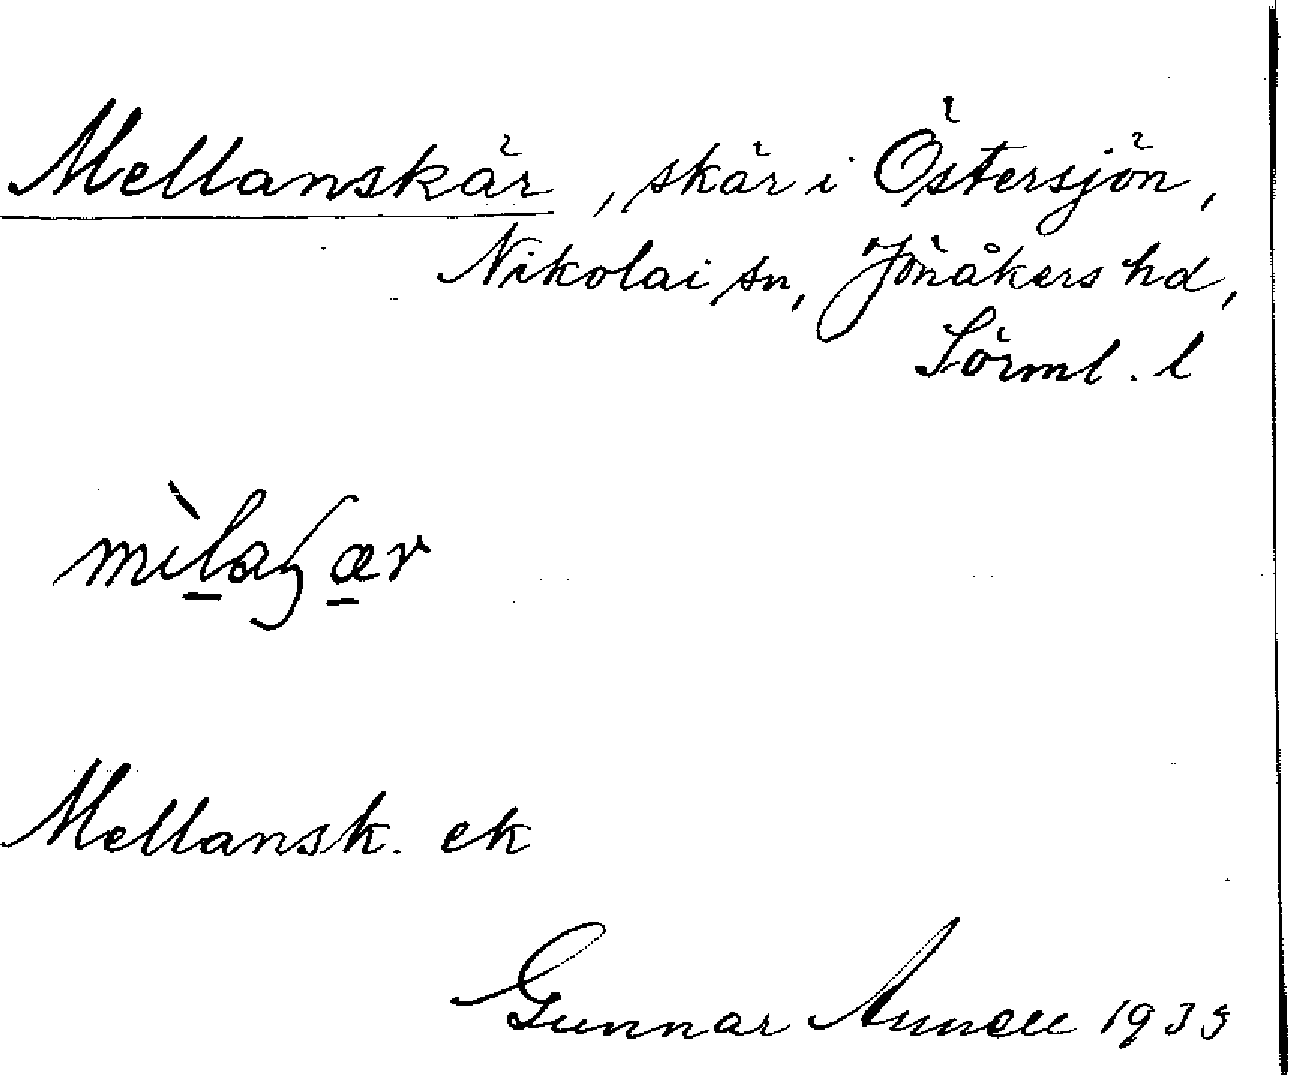 Mellanskär, skär i Östersjön,
Nikolai sn, Jönåkers hd,
Sörml. l
Mellansk. ek
Gunnar 1935